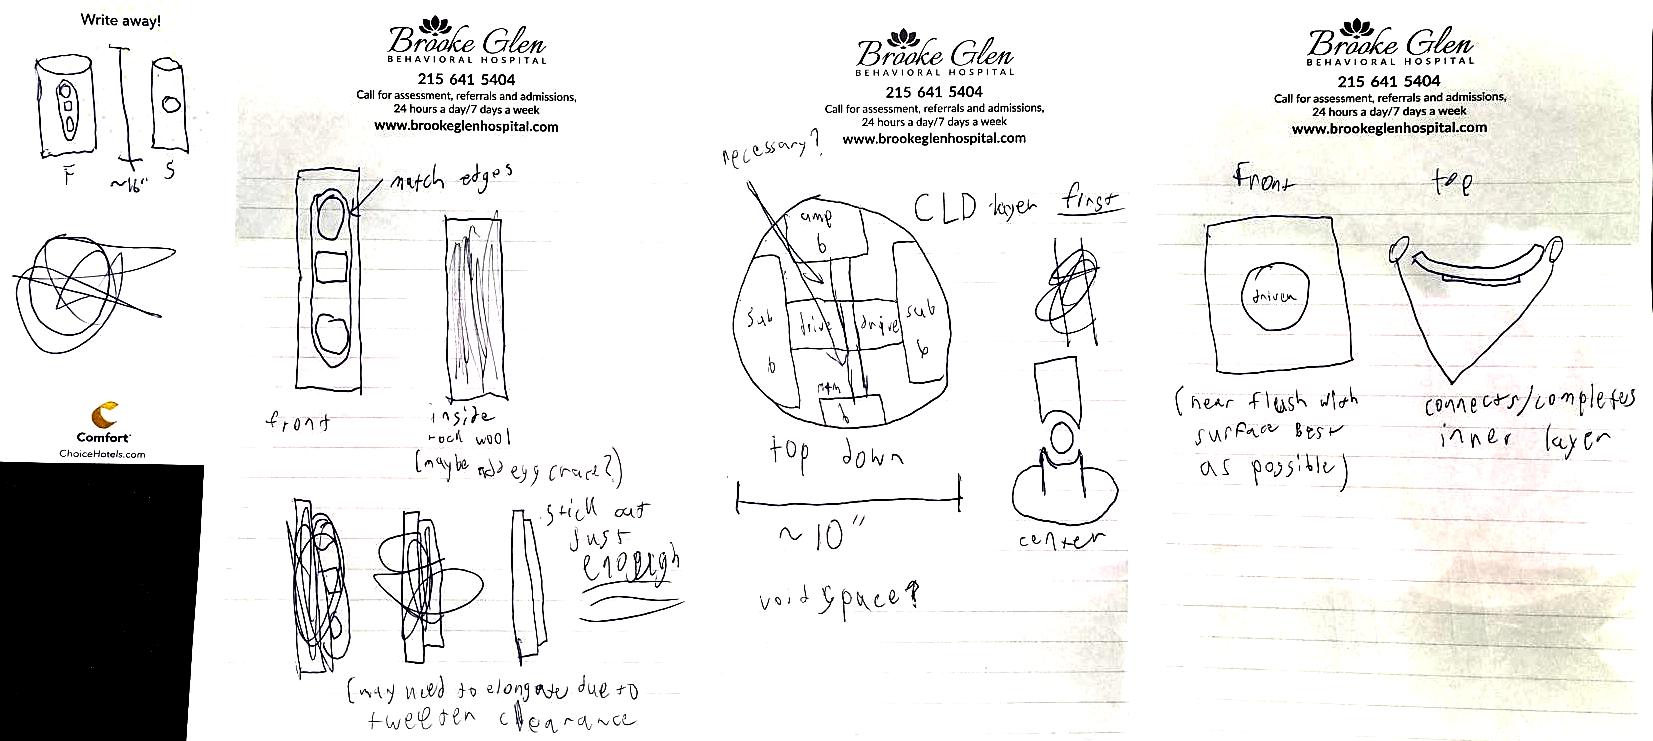 Write away!
F
~16"
S
Comfort
ChoiceHotels.com
Brooke Glen
BEHAVIORAL HOSPITAL
215 641 5404
Call for assessment, referrals and admissions,
24 hours a day/7 days a week
www.brookeglenhospital.com
match edges
front
inside
rock wool
(maybe add egg crate?)
stick out
just
enough
(may need to elongate due to
tweeter clearance
Brooke Glen
BEHAVIORAL HOSPITAL
215 641 5404
Call for assessment, referrals and admissions,
24 hours a day/7 days a week
www.brookeglenhospital.com
necessary?
CLD layer first
amp
6
sub
6
drive
drive
sub
6
mtm
6
top down
~10"
void space?
center
Brooke Glen
BEHAVIORAL HOSPITAL
215 641 5404
Call for assessment, referrals and admissions,
24 hours a day/7 days a week
www.brookeglenhospital.com
Front
top
driven
(near flush with
surface best
as possible)
connects/completes
inner layer